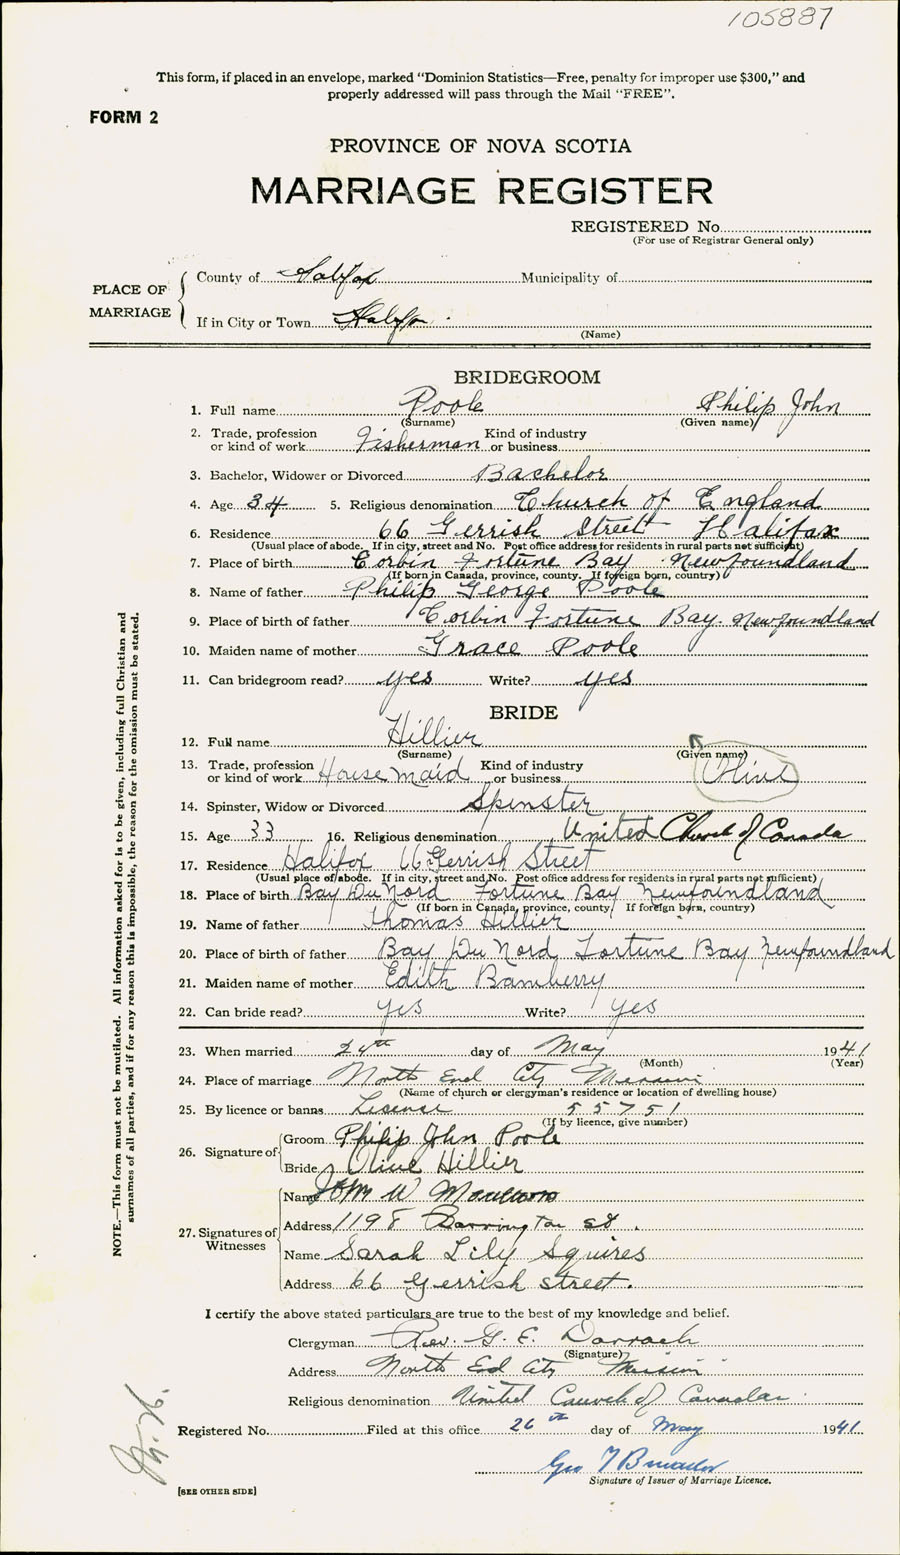 105887
This form, if placed in an envelope, marked "Dominion Statistics—Free, penalty for improper use $300," and
properly addressed will pass through the Mail "FREE".
FORM 2
PROVINCE OF NOVA SCOTIA
MARRIAGE REGISTER
REGISTERED No.
(For use of Registrar General only)
PLACE OF MARRIAGE
County of Halifax Municipality of
If in City or Town Halifax
(Name)
BRIDEGROOM
1. Full name Poole Philip John
(Surname) (Given name)
2. Trade, profession or kind of work Fisherman Kind of industry or business
3. Bachelor, Widower or Divorced Bachelor
4. Age 34 5. Religious denomination Church of England
6. Residence 66 Gerrish Street Halifax
(Usual place of abode. If in city, street and No. Post office address for residents in rural parts not sufficient)
7. Place of birth Corbin Fortune Bay Newfoundland
(If born in Canada, province, county. If foreign born, country)
8. Name of father Philip George Poole
9. Place of birth of father Corbin Fortune Bay. Newfoundland
10. Maiden name of mother Grace Poole
11. Can bridegroom read? yes Write? yes
BRIDE
12. Full name Hillier
(Surname) (Given name)
13. Trade, profession or kind of work House maid Kind of industry or business Olive
14. Spinster, Widow or Divorced Spinster
15. Age 33 16. Religious denomination United Church of Canada
17. Residence Halifax 66 Gerrish Street
(Usual place of abode. If in city, street and No. Post office address for residents in rural parts not sufficient)
18. Place of birth Bay Du Nord Fortune Bay Newfoundland
(If born in Canada, province, county. If foreign born, country)
19. Name of father Thomas Hillier
20. Place of birth of father Bay Du Nord Fortune Bay Newfoundland
21. Maiden name of mother Edith Bamberry
22. Can bride read? yes Write? yes
23. When married 24th day of May 1941
(Month) (Year)
24. Place of marriage North End City Mission
(Name of church or clergyman's residence or location of dwelling house)
25. By licence or banns License 55751
(If by licence, give number)
26. Signature of
Groom Philip John Poole
Bride Olive Hillier
27. Signatures of Witnesses
Name John W
Address 1198 Barrington St.
Name Sarah Lily Squires
Address 66 Gerrish street.
I certify the above stated particulars are true to the best of my knowledge and belief.
Clergyman Rev. G. E. Darrach
(Signature)
Address North End City Mission
Religious denomination United Church of Canada
Registered No. Filed at this office 26th day of May 1941
Geo
Signature of Issuer of Marriage Licence.
[SEE OTHER SIDE]
NOTE.—This form must not be mutilated. All information asked for is to be given, including full Christian and
surnames of all parties, and if for any reason this is impossible, the reason for the omission must be stated.